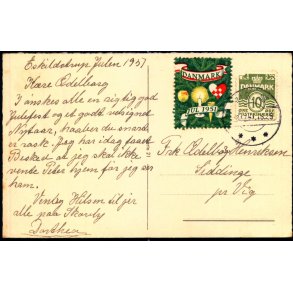 Eskildstrup Julen 1951
Kære Edelborg
I ønskes alle en rigtig god
Julefest og et godt velsignet
Nytaar, haaber du snart
er rask. Jeg har idag faaet
Besked at jeg skal ikke
vente Peter hjem før jeg ser
ham.
Venlig Hilsen til jer
alle paa
Dorthea
DANMARK
JUL 1951
DANMARK
10
Frk Edelborg Henriksen
Siddinge
pr Vig